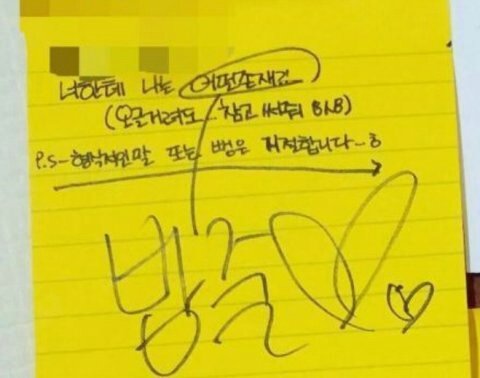 너한테 나는 어떤존재?
(오글거려도.. 참고 써줘 B.A.B)
P.S-형식적인말 또는 빵은 거절합니다..ㅎ
방줄